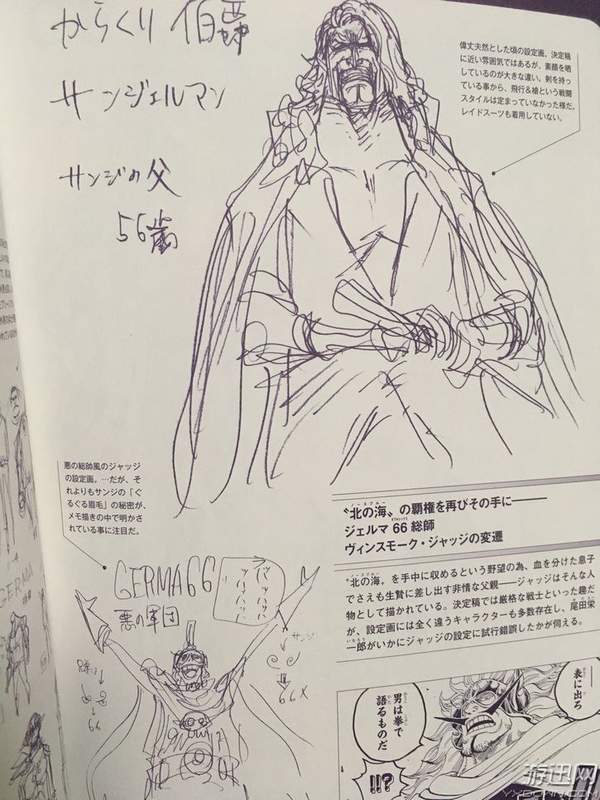 からくり 伯爵
サンジェルマン
サンジの父
56歳
偉丈夫然とした頃の設定画。決定稿
に近い雰囲気ではあるが、素顔を晒
しているのが大きな違い。剣を持っ
ている事から、飛行&槍という戦闘
スタイルは定まっていなかった様だ。
レイドスーツも着用していない。
悪の総帥風のジャッジ
の設定画。…だが、そ
れよりもサンジの「ぐ
るぐる眉毛」の秘密が、
メモ描きの中で明かさ
れている事に注目だ。
GERMA66
悪の軍団
サンジ
66
66
〝北の海〟の覇権を再びその手に——
ジェルマ 66 総帥
ヴィンスモーク・ジャッジの変遷
〝北の海〟を手中に収めるという野望の為、血を分けた息子
でさえも生贄に差し出す非情な父親——ジャッジはそんな人
物として描かれている。決定稿では厳格な戦士といった趣だ
が、設定画には全く違うキャラクターも多数存在し、尾田栄
一郎がいかにジャッジの設定に試行錯誤したかが伺える。
表に出ろ
男は拳で
語るものだ
!!?
GERMA
游讯网
YXDOWN.COM